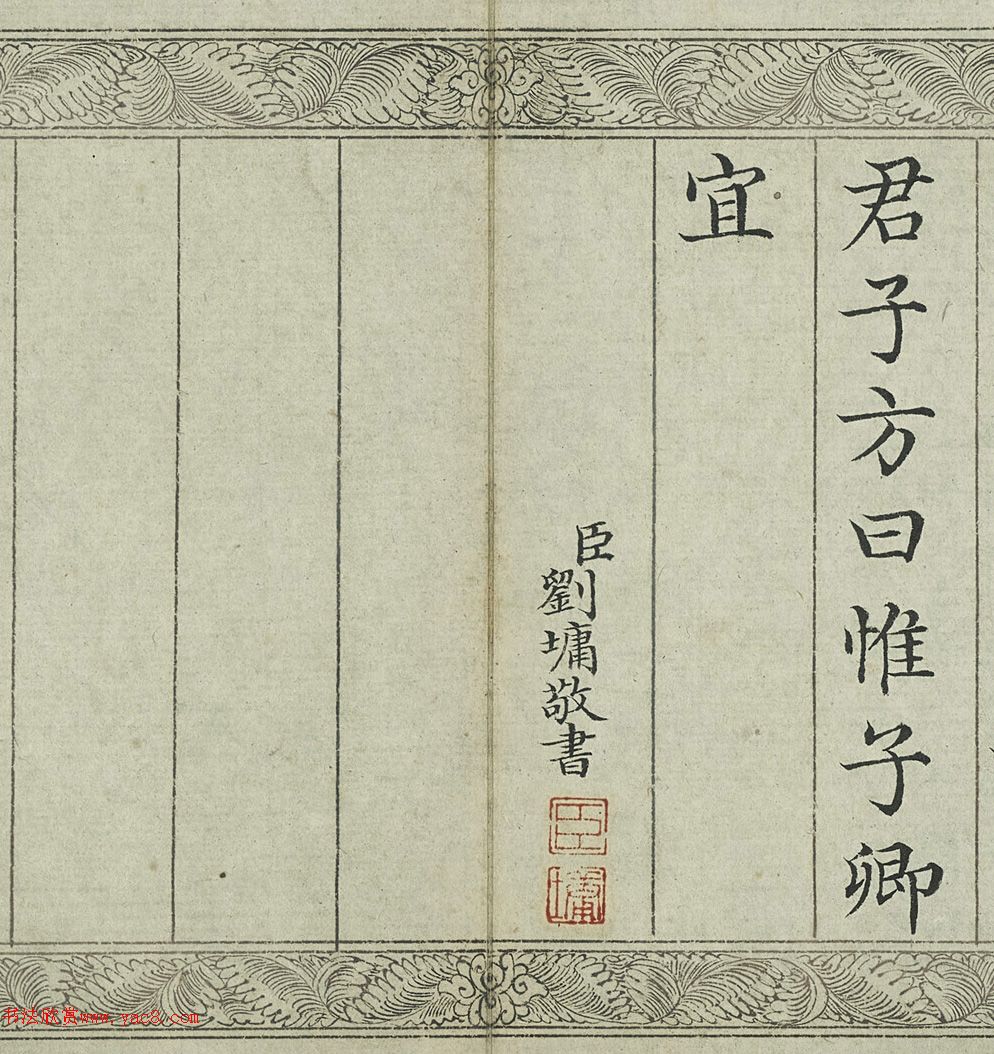 君子方曰惟子卿
宜
臣劉墉敬書
臣
墉
书法欣赏www.yac8.com